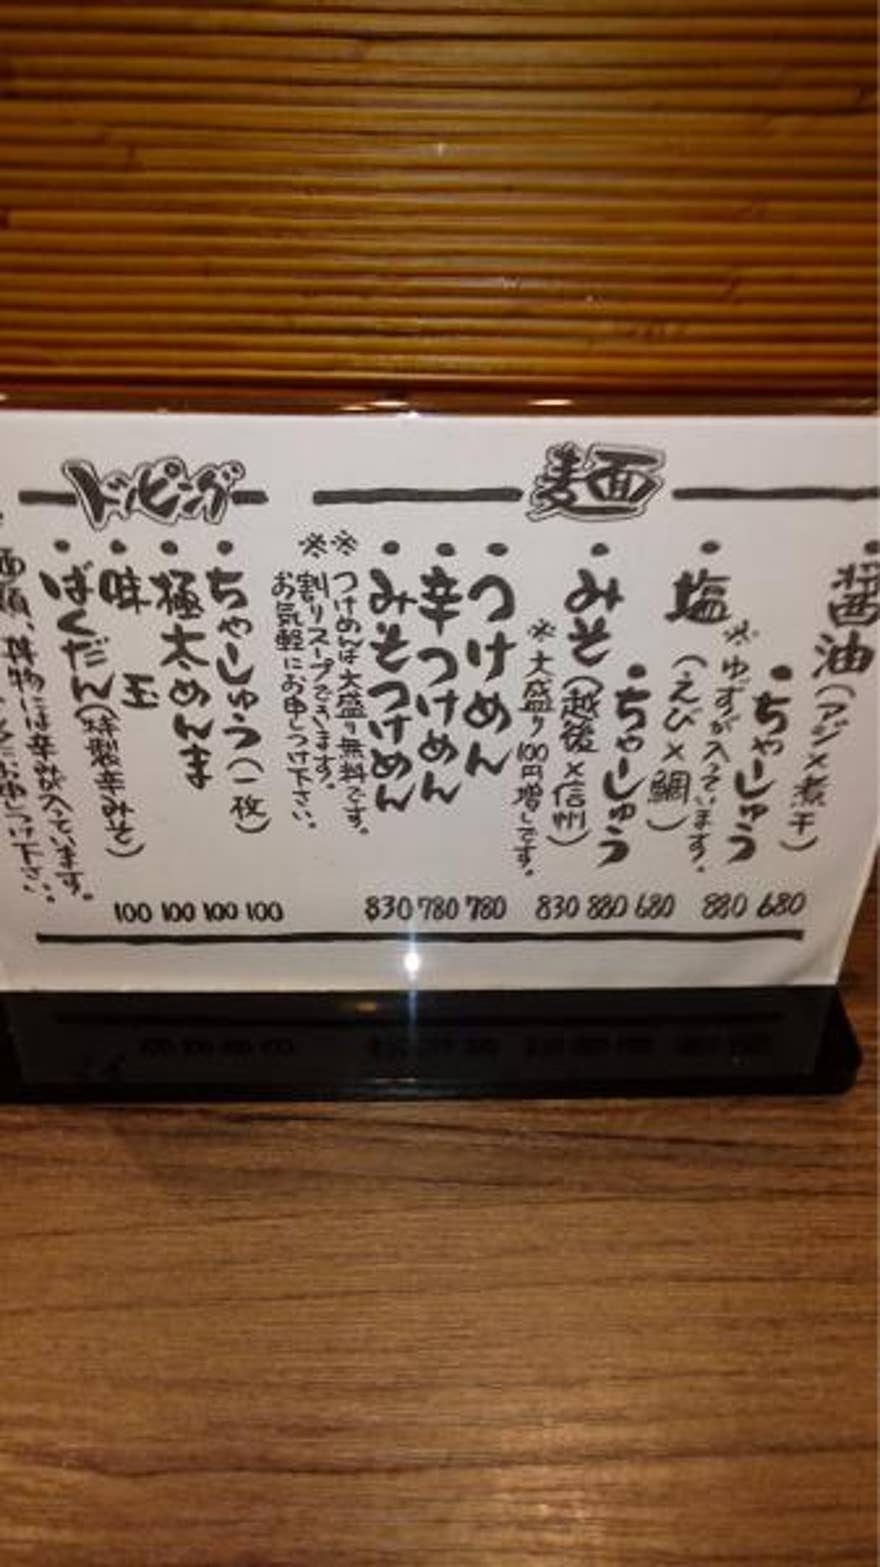 麺
醤油(アジ×煮干)
ちゃーしゅう
※ゆずが入っています。
塩(えび×鯛)
ちゃーしゅう
みそ(越後×信州)
※大盛り100円増しです。
つけめん
辛つけめん
みそつけめん
※つけめんは大盛り無料です。
※割りスープございます。
お気軽にお申しつけ下さい。
680
880
680
880
830
780
780
830
トッピング
ちゃーしゅう(一枚)
極太めんま
味玉
ばくだん(特製辛みそ)
100
100
100
100
麺類、丼物には辛味が入っています。
お申しつけ下さい。